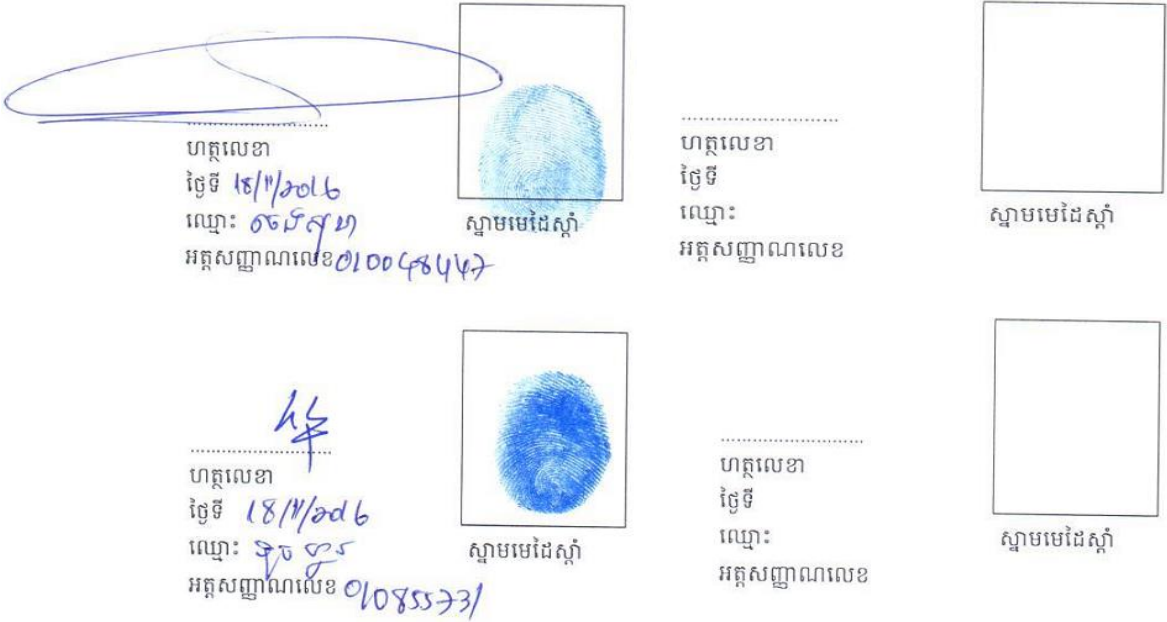 ហត្ថលេខា
ថ្ងៃទី 18/11/2016
ឈ្មោះ
អត្តសញ្ញាណលេខ 010048447
ស្នាមមេដៃស្តាំ
ហត្ថលេខា
ថ្ងៃទី
ឈ្មោះ
អត្តសញ្ញាណលេខ
ស្នាមមេដៃស្តាំ
ហត្ថលេខា
ថ្ងៃទី 18/11/2016
ឈ្មោះ
អត្តសញ្ញាណលេខ 010855731
ស្នាមមេដៃស្តាំ
ហត្ថលេខា
ថ្ងៃទី
ឈ្មោះ
អត្តសញ្ញាណលេខ
ស្នាមមេដៃស្តាំ